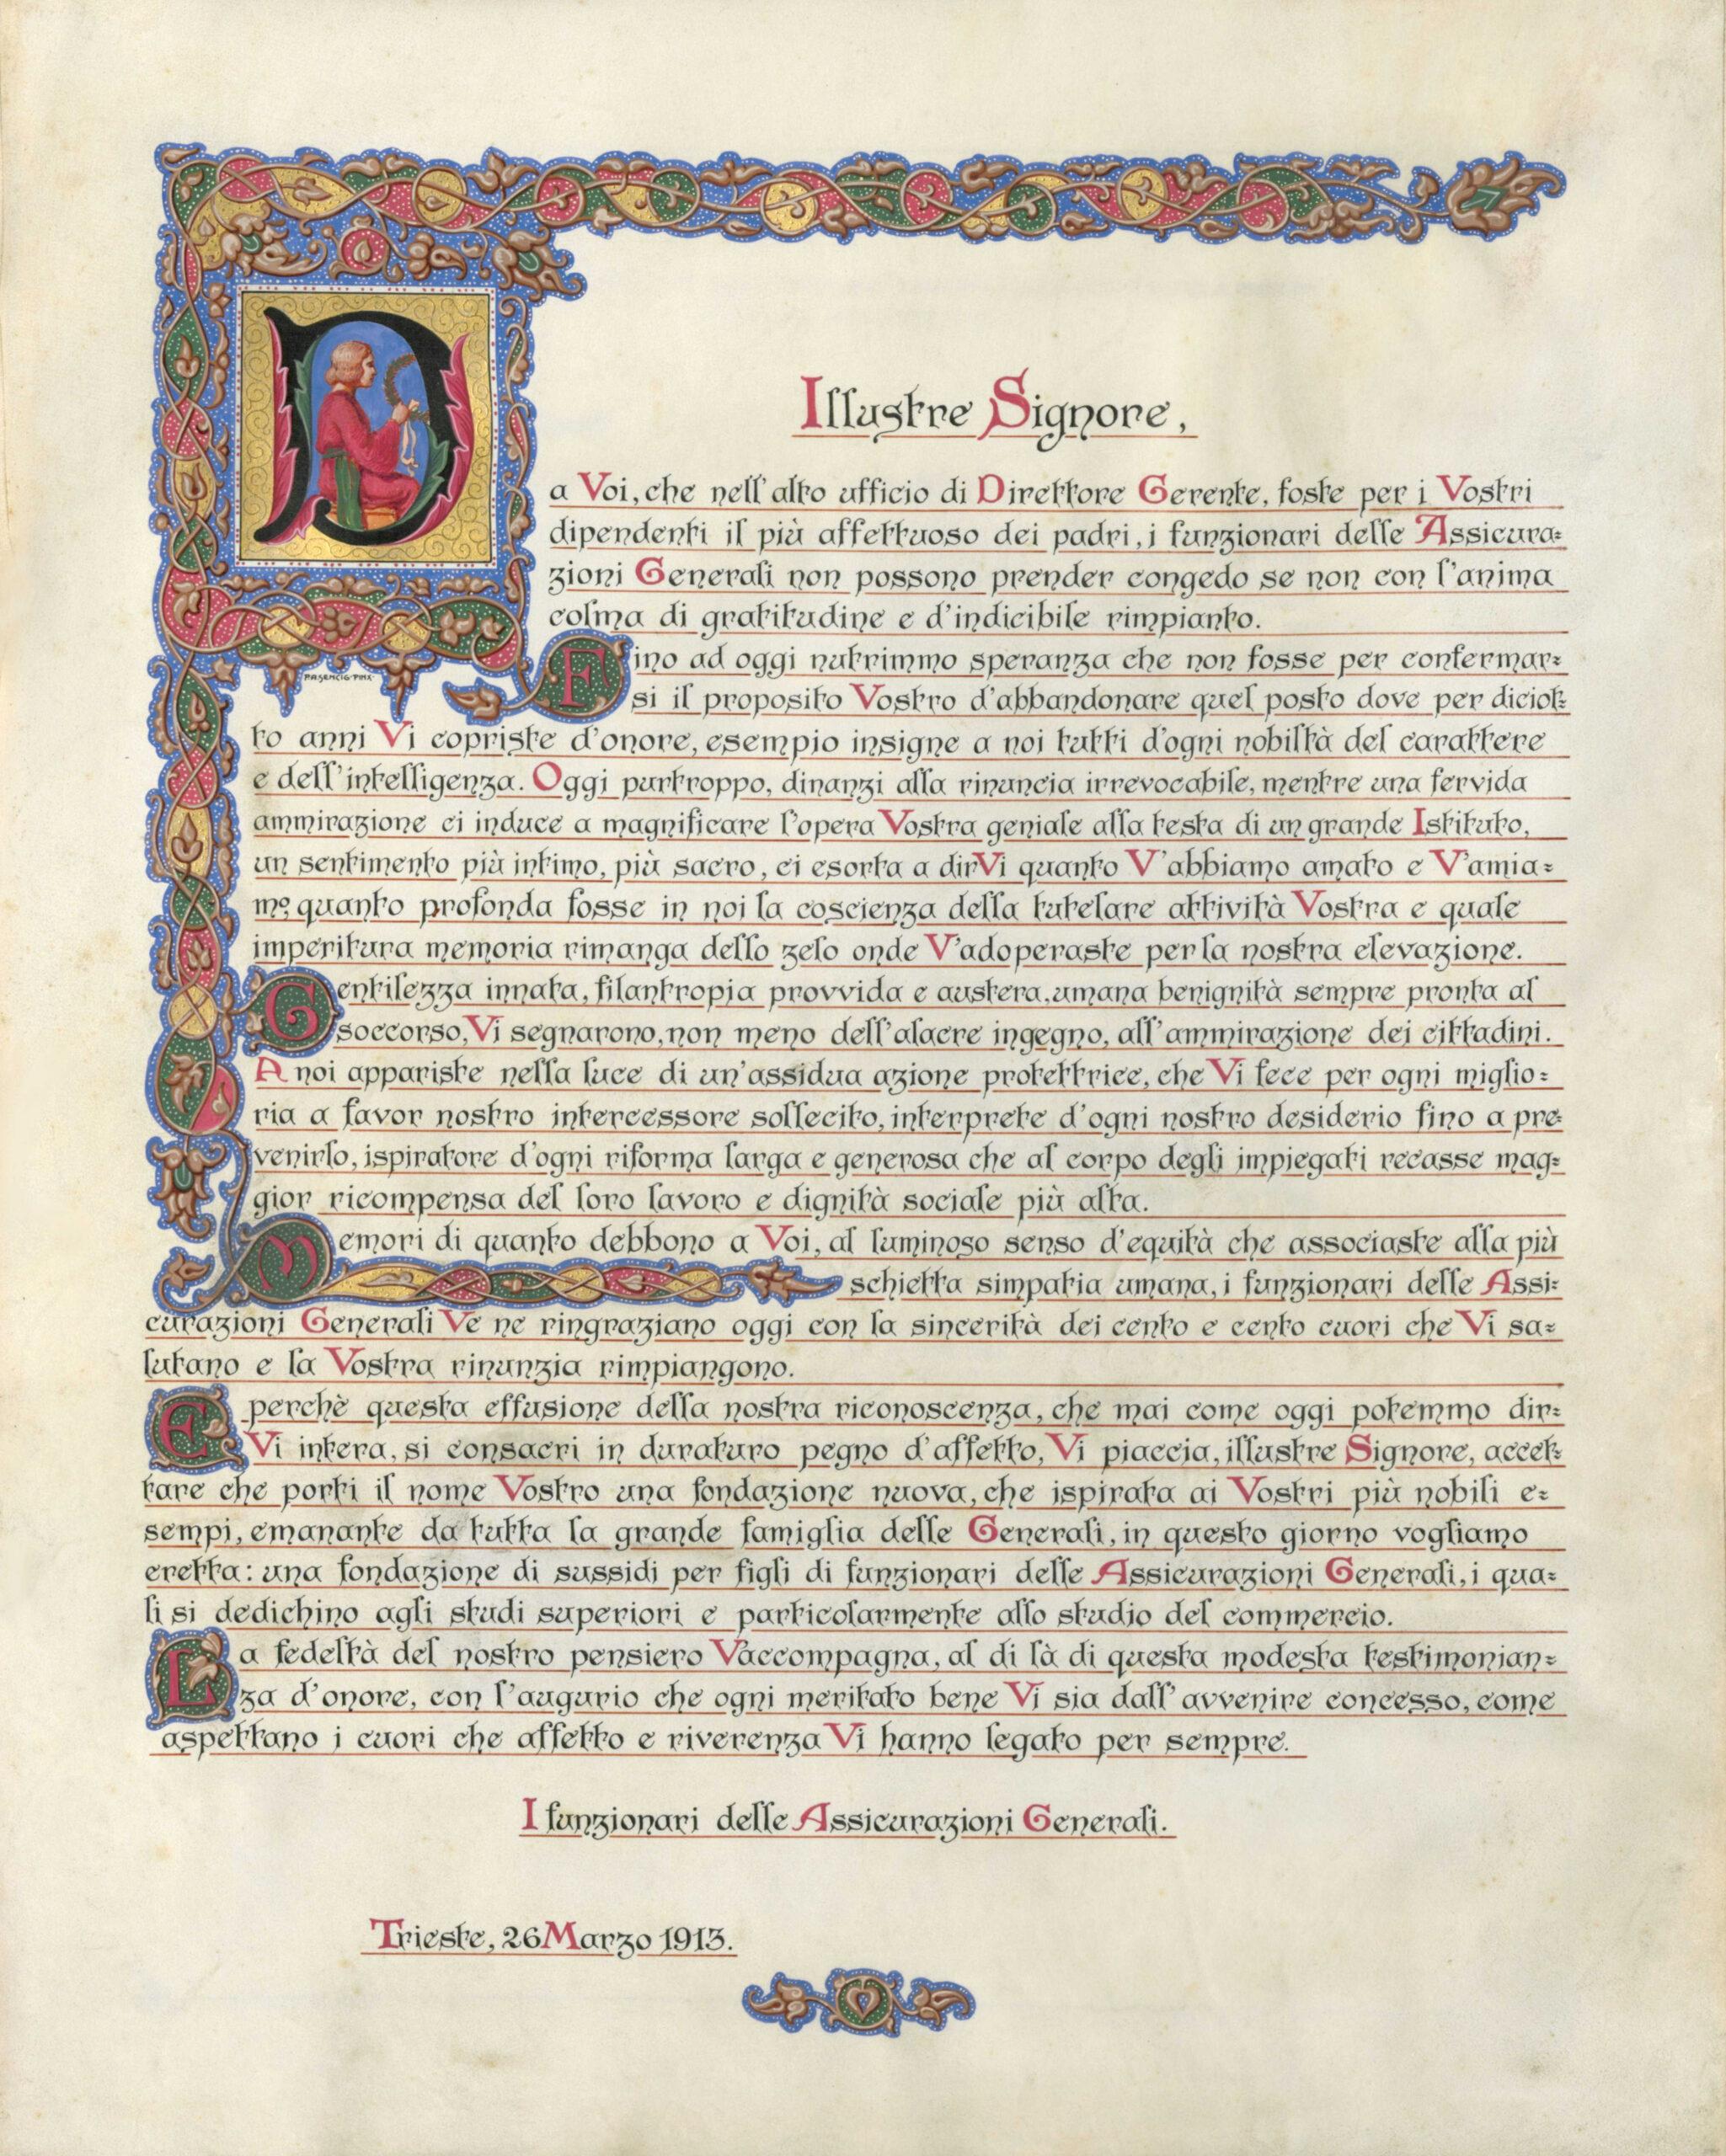 Illustre Signore,
Da Voi, che nell'alto ufficio di Direttore Gerente, foste per i Vostri
dipendenti il più affettuoso dei padri, i funzionari delle Assicura=
zioni Generali non possono prender congedo se non con l'anima
colma di gratitudine e d'indicibile rimpianto.
Fino ad oggi nutrimmo speranza che non fosse per confermar=
si il proposito Vostro d'abbandonare quel posto dove per diciot=
PASENCIG·PINX·
to anni Vi copriste d'onore, esempio insigne a noi tutti d'ogni nobiltà del carattere
e dell'intelligenza. Oggi purtroppo, dinanzi alla rinuncia irrevocabile, mentre una fervida
ammirazione ci induce a magnificare l'opera Vostra geniale alla testa di un grande Istituto,
un sentimento più intimo, più sacro, ci esorta a dirVi quanto V'abbiamo amato e V'amia=
mo, quanto profonda fosse in noi la coscienza della tutelare attività Vostra e quale
imperitura memoria rimanga dello zelo onde V'adoperaste per la nostra elevazione.
Gentilezza innata, filantropia provvida e austera, umana benignità sempre pronta al
soccorso, Vi segnarono, non meno dell'alacre ingegno, all'ammirazione dei cittadini.
A noi appariste nella luce di un'assidua azione protettrice, che Vi fece per ogni miglio=
ria a favor nostro intercessore sollecito, interprete d'ogni nostro desiderio fino a pre=
venirlo, ispiratore d'ogni riforma larga e generosa che al corpo degli impiegati recasse mag=
gior ricompensa del loro lavoro e dignità sociale più alta.
Memori di quanto debbono a Voi, al luminoso senso d'equità che associaste alla più
schietta simpatia umana, i funzionari delle Assi=
curazioni Generali Ve ne ringraziano oggi con la sincerità dei cento e cento cuori che Vi sa=
lutano e la Vostra rinunzia rimpiangono.
E perchè questa effusione della nostra riconoscenza, che mai come oggi potemmo dir=
Vi intera, si consacri in duraturo pegno d'affetto, Vi piaccia, illustre Signore, accet=
tare che porti il nome Vostro una fondazione nuova, che ispirata ai Vostri più nobili e=
sempi, emanante da tutta la grande famiglia delle Generali, in questo giorno vogliamo
eretta: una fondazione di sussidi per figli di funzionari delle Assicurazioni Generali, i qua=
li si dedichino agli studi superiori e particolarmente allo studio del commercio.
La fedeltà del nostro pensiero V'accompagna, al di là di questa modesta testimonian=
za d'onore, con l'augurio che ogni meritato bene Vi sia dall'avvenire concesso, come
aspettano i cuori che affetto e riverenza Vi hanno legato per sempre.
I funzionari delle Assicurazioni Generali.
Trieste, 26 Marzo 1913.